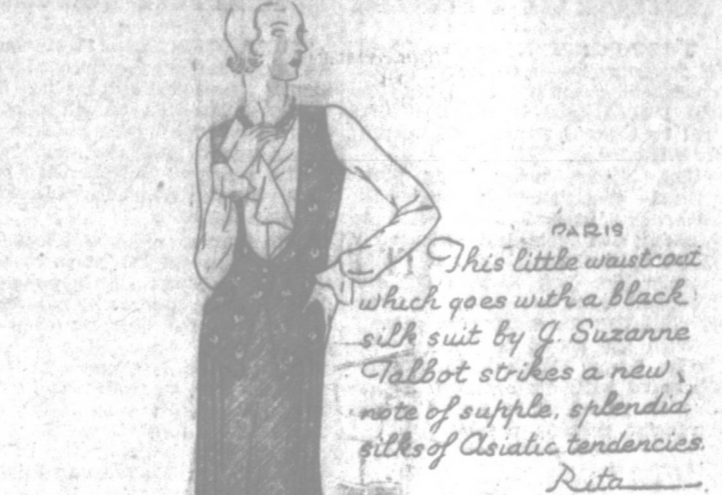 PARIS
This little waistcoat
which goes with a black
silk suit by J. Suzanne
Talbot strikes a new
note of supple, splendid
silks of Asiatic tendencies.
Rita